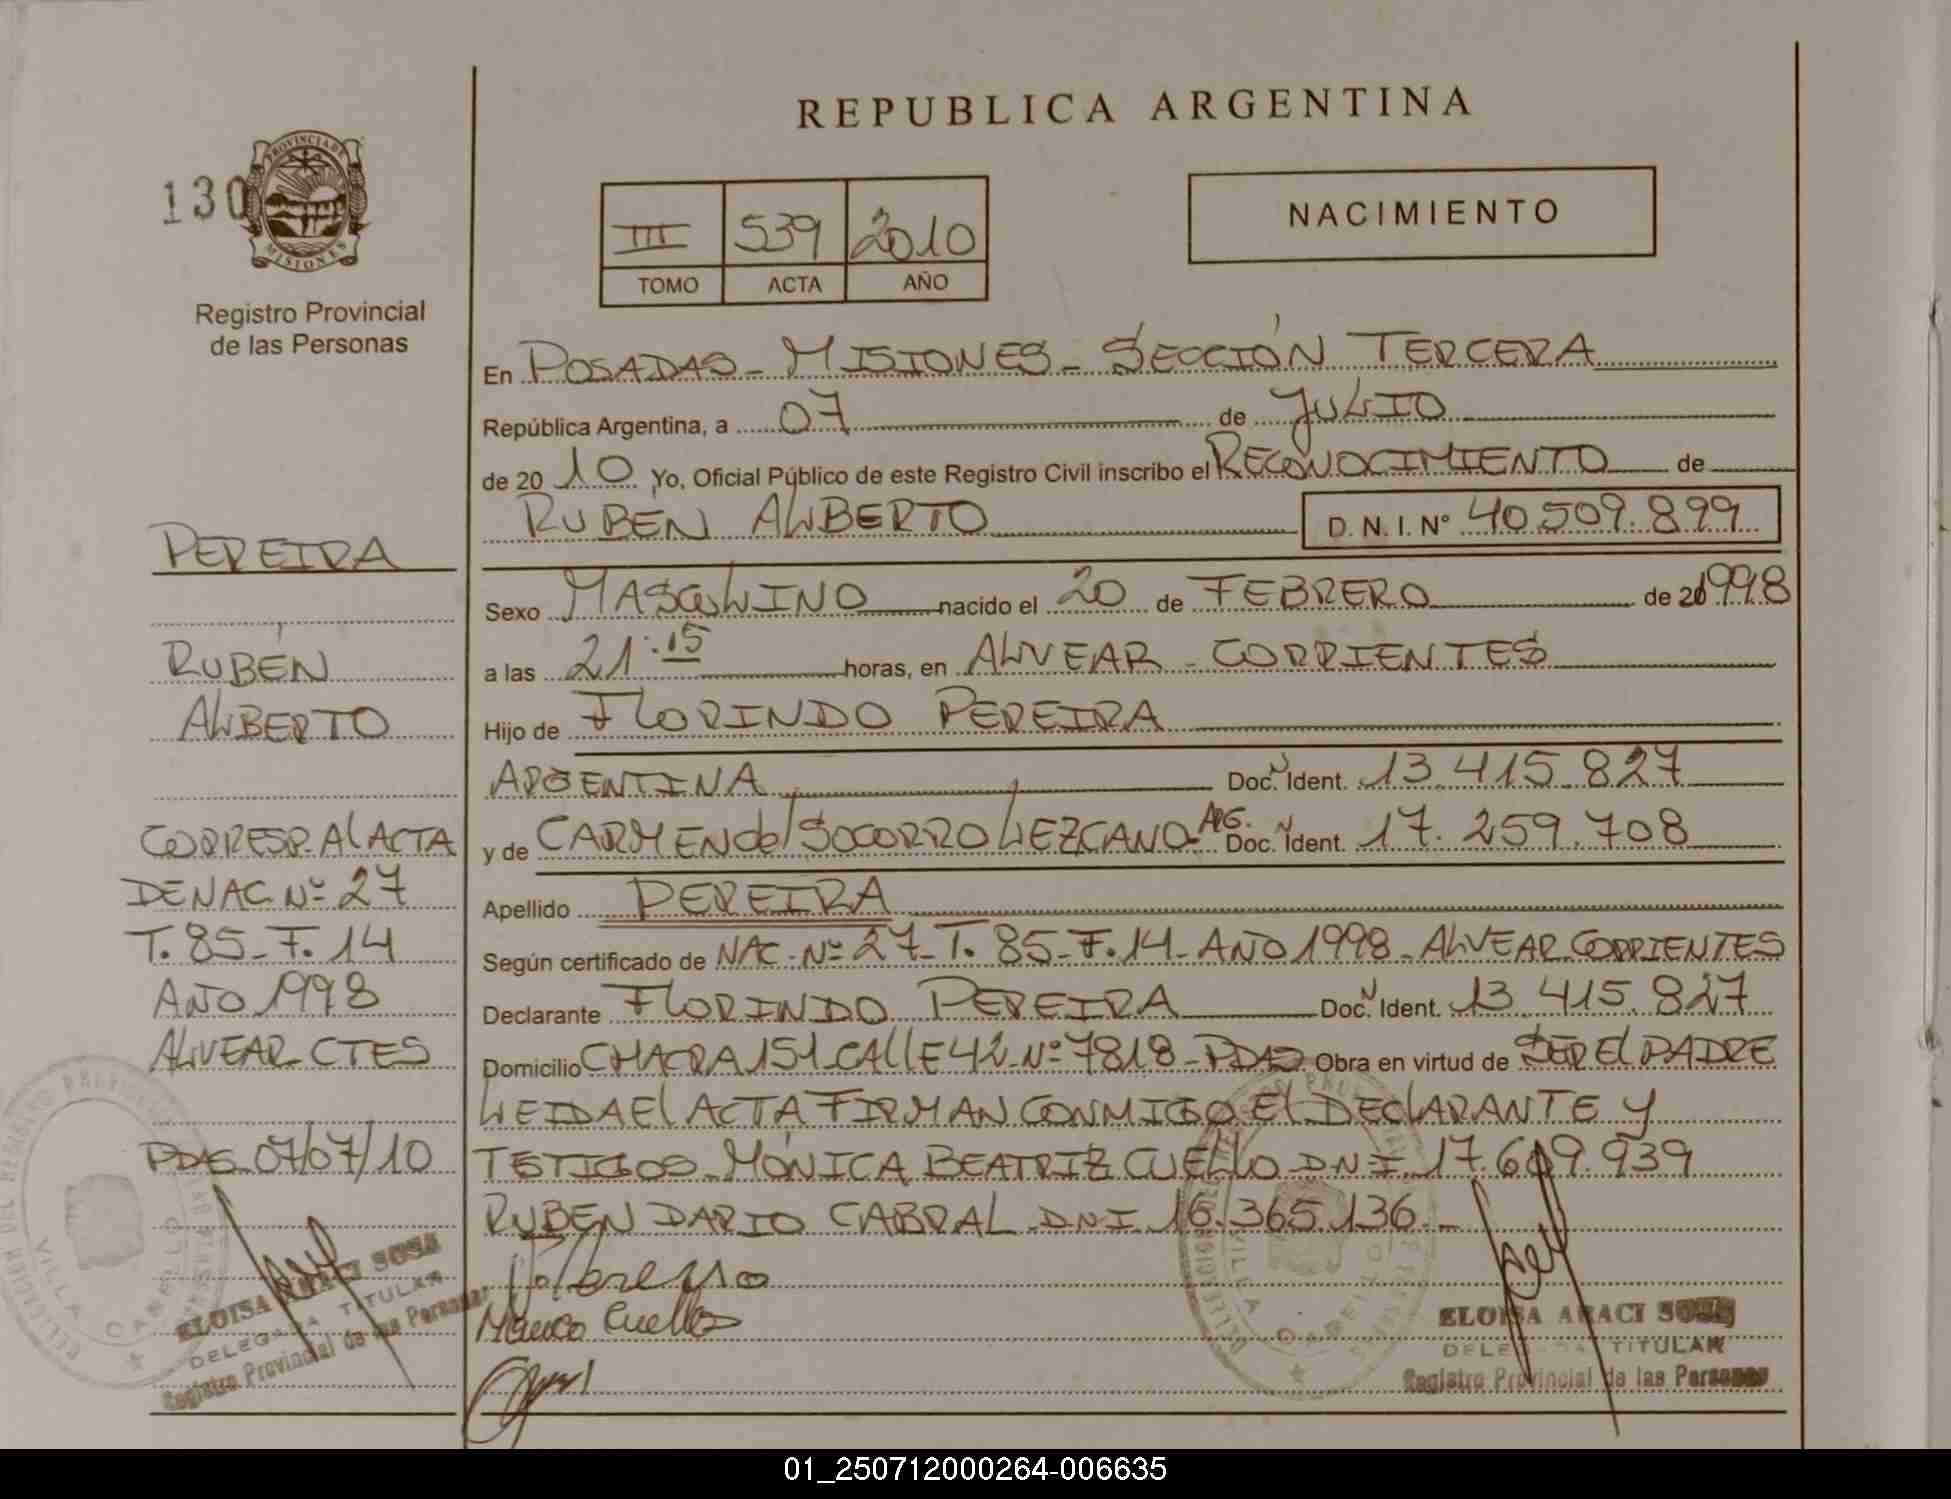 REPUBLICA ARGENTINA
130
PROVINCIA DE
MISIONES
Registro Provincial
de las Personas
III 539 2010
TOMO ACTA AÑO
NACIMIENTO
En POSADAS - MISIONES - SECCIÓN TERCERA
República Argentina, a 07 de JULIO
de 2010 Yo, Oficial Público de este Registro Civil inscribo el RECONOCIMIENTO de
RUBEN ALBERTO D.N.I. Nº 40.509.899
PEREIRA
RUBÉN
ALBERTO
CORRESP. Al ACTA
DE NAC Nº 27
T. 85 - F. 14
AÑO 1998
ALVEAR - CTES
PDAS 07/07/10
Sexo MASCULINO nacido el 20 de FEBRERO de 1998
a las 21:15 horas, en ALVEAR - CORRIENTES
Hijo de FLORINDO PEREIRA
ARGENTINA Doc. Ident. 13.415.827
y de CARMEN del SOCORRO LEZCANO ARG. Doc. Ident. 17.259.708
Apellido PEREIRA
Según certificado de NAC - Nº 27 - T. 85 - F. 14 - AÑO 1998 - ALVEAR CORRIENTES
Declarante FLORINDO PEREIRA Doc. Ident. 13.415.827
Domicilio CHACRA 151 CALLE 42 - Nº 7818 - PDAS Obra en virtud de SER El PADRE
LEIDA El ACTA FIRMAN CONMIGO El DEClARANTE Y
TESTIGOS - MÓNICA BEATRIZ CUELLO DNI 17.609.939
RUBEN DARIO CABRAL DNI 16.365.136.-
ELOISA ARACI SOSA
DELEGADA TITULAR
Registro Provincial de las Personas
VILLA CABELLO
Cuello
ELOISA ARACI SOSA
DELEGADA TITULAR
Registro Provincial de las Personas
01_250712000264-006635